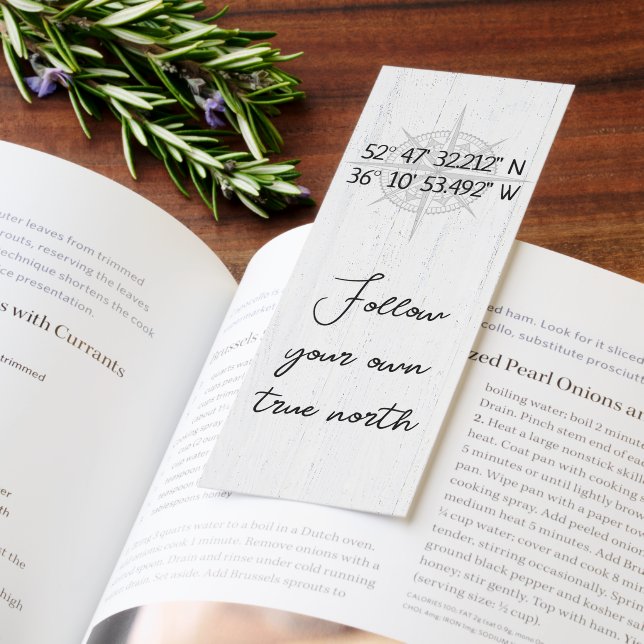 52° 47' 32.212" N
36° 10' 53.492" W
Follow
your own
true north
uter leaves from trimmed
routs, reserving the leaves
technique shortens the cook
ce presentation.
s with Currants
trimmed
water
st the
high
Brussels
quarts water
cups
about
cup
cup (2 ou
cup water
teaspoon
teaspoon
tablespoons honey
ing 3 quarts water to a boil in a Dutch oven.
onions; cook 1 minute. Remove onions with a
ed spoon. Drain and rinse under cold running
drain. Set aside. Add Brussels sprouts to
ed ham. Look for it sliced
ollo, substitute prosciutt
zed Pearl Onions an
boiling water; boil 2 minute
Drain. Pinch stem end of ea
2. Heat a large nonstick skill
heat. Coat pan with cooking s
5 minutes or until lightly brow
pan. Wipe pan with a paper tow
cooking spray. Add peeled onion
medium heat 5 minutes. Add Bru
¼ cup water; cover and cook 8 min
tender, stirring occasionally. Sprin
ground black pepper and kosher sa
honey; stir gently. Top with ham.
(serving size: ½ cup).
CALORIES 100, FAT 2g (sat 0.9g, mono
CHOL 4mg; IRON 1mg; SODIUM